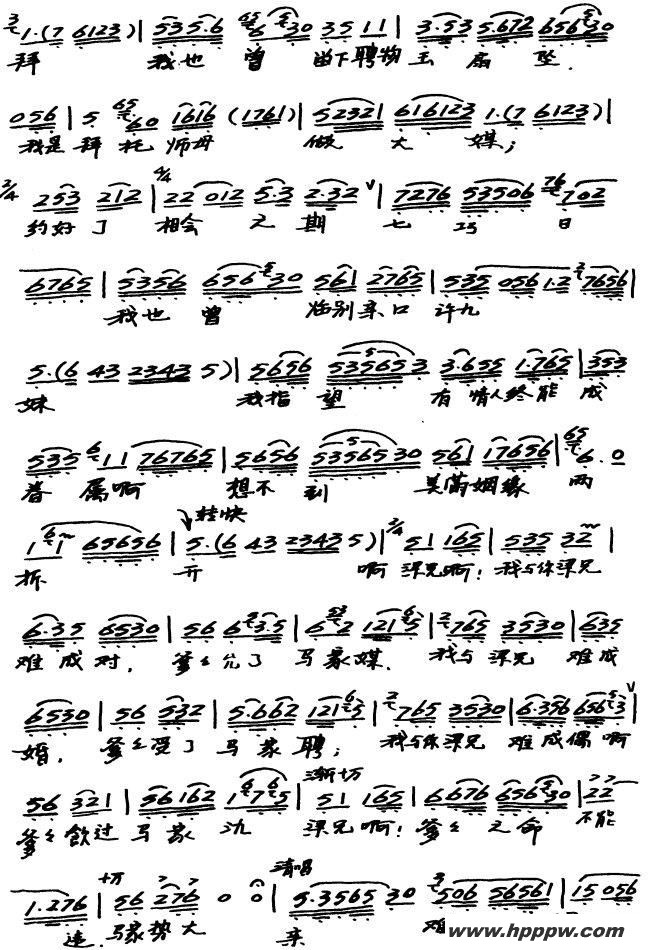 1·(7 6123) | 535·6 6 30 35 11 | 3·53 5·672 656530
拜 我也 曾 留下聘物 玉 扇 坠．
056 | 5 60 1616 (1761) | 52321 616123 1·(7 6123) |
我是拜托 师母 做 大 媒；
2/4 253 212 | 4/4 22 012 5·3 2·32 ∨ | 7276 53506 702
约好了 相会 之 期 七 巧 日
6765 | 5356 656530 561 2765 | 535 056 1·2 7656 |
我也 曾 临别亲口 许九
5·(6 43 2343 5) | 5656 535653 3·655 1·765 | 353
妹 我指 望 有情人终能 成
535 11 76765 | 5656 5356530 561 17656 | 6·0
眷 属啊 想不 到 美满姻缘 两
转快
1 1 65656 | 5·(6 43 23435) | 3/4 51 165 | 535 32 |
拆 开 啊 梁兄啊！ 我与你梁兄
6·35 6530 | 56 63·5 | 62 1215 | 765 3530 | 635
难成对． 爹々允了 马家媒． 我与 梁兄 难成
6530 | 56 532 | 5·662 1215 | 765 3530 | 6·356 6563 ∨ |
婚． 爹々受了 马家 聘； 我与你梁兄 难成偶啊
渐切
56 321 | 56162 1765 | 51 165 | 6676 65630 | 22
爹々饮过 马家 酒 梁兄啊！ 爹々 之命 不能
清唱
1·276 | 56 276 0 0 | 5·3565 30 506 56561 | 15056
违．马家势大 亲 难
www.hpppw.com